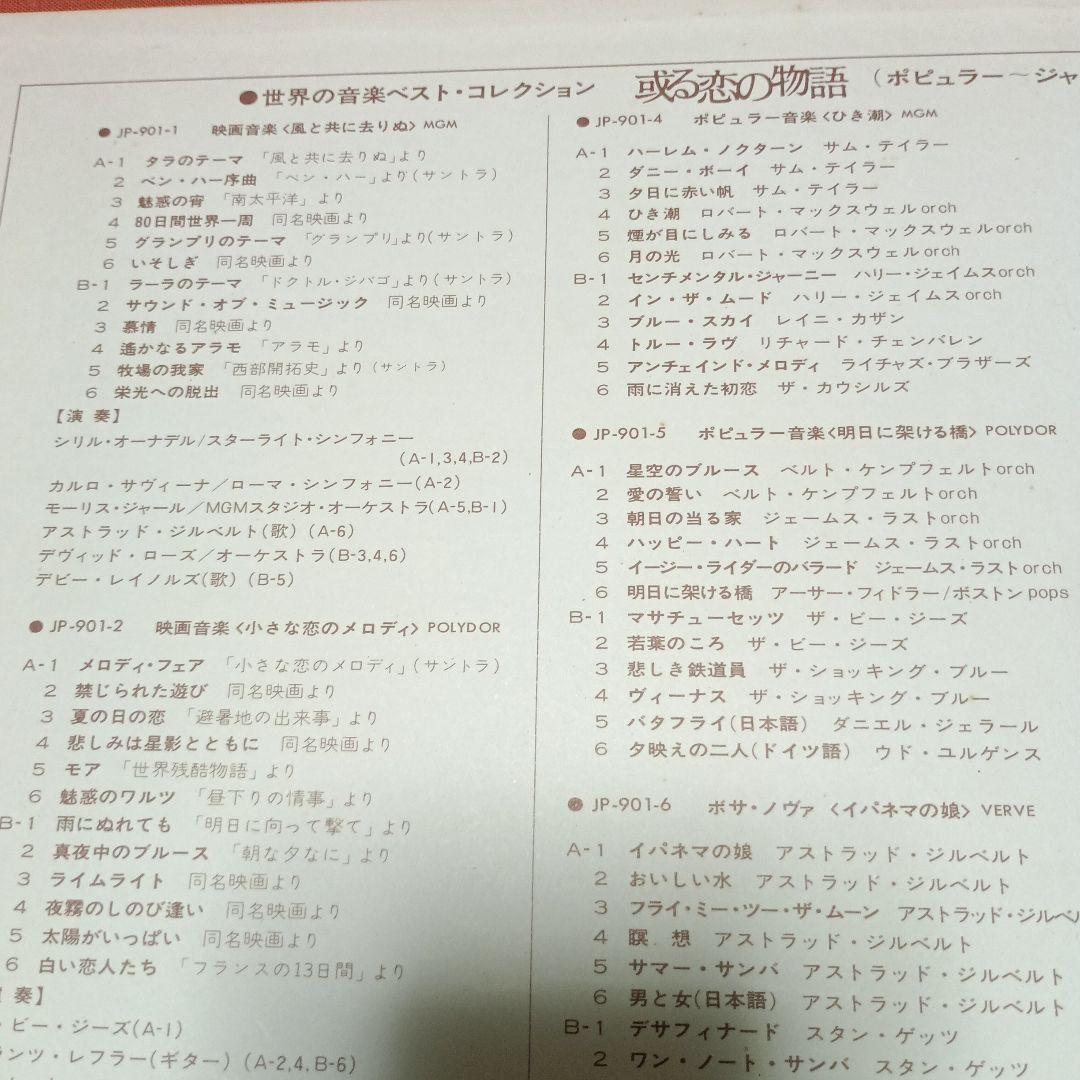 ●世界の音楽ベスト・コレクション 或る恋の物語 (ポピュラー〜ジャ
● JP-901-1 映画音楽〈風と共に去りぬ〉MGM
A-1 タラのテーマ 「風と共に去りぬ」より
2 ベン・ハー序曲 「ベン・ハー」より(サントラ)
3 魅惑の宵 「南太平洋」より
4 80日間世界一周 同名映画より
5 グランプリのテーマ 「グランプリ」より(サントラ)
6 いそしぎ 同名映画より
B-1 ラーラのテーマ 「ドクトル・ジバゴ」より(サントラ)
2 サウンド・オブ・ミュージック 同名映画より
3 慕情 同名映画より
4 遙かなるアラモ 「アラモ」より
5 牧場の我家 「西部開拓史」より(サントラ)
6 栄光への脱出 同名映画より
【演 奏】
シリル・オーナデル/スターライト・シンフォニー
(A-1,3,4,B-2)
カルロ・サヴィーナ/ローマ・シンフォニー(A-2)
モーリス・ジャール/MGMスタジオ・オーケストラ(A-5,B-1)
アストラッド・ジルベルト(歌) (A-6)
デヴィッド・ローズ/オーケストラ(B-3,4,6)
デビー・レイノルズ(歌) (B-5)
● JP-901-2 映画音楽〈小さな恋のメロディ〉POLYDOR
A-1 メロディ・フェア 「小さな恋のメロディ」(サントラ)
2 禁じられた遊び 同名映画より
3 夏の日の恋 「避暑地の出来事」より
4 悲しみは星影とともに 同名映画より
5 モア 「世界残酷物語」より
6 魅惑のワルツ 「昼下りの情事」より
B-1 雨にぬれても 「明日に向って撃て」より
2 真夜中のブルース 「朝な夕なに」より
3 ライムライト 同名映画より
4 夜霧のしのび逢い 同名映画より
5 太陽がいっぱい 同名映画より
6 白い恋人たち 「フランスの13日間」より
奏】
・ビー・ジーズ(A-1)
ランツ・レフラー(ギター) (A-2,4,B-6)
● JP-901-4 ポピュラー音楽〈ひき潮〉MGM
A-1 ハーレム・ノクターン サム・テイラー
2 ダニー・ボーイ サム・テイラー
3 夕日に赤い帆 サム・テイラー
4 ひき潮 ロバート・マックスウェルorch
5 煙が目にしみる ロバート・マックスウェルorch
6 月の光 ロバート・マックスウェルorch
B-1 センチメンタル・ジャーニー ハリー・ジェイムスorch
2 イン・ザ・ムード ハリー・ジェイムスorch
3 ブルー・スカイ レイニ・カザン
4 トルー・ラヴ リチャード・チェンバレン
5 アンチェインド・メロディ ライチャズ・ブラザーズ
6 雨に消えた初恋 ザ・カウシルズ
● JP-901-5 ポピュラー音楽〈明日に架ける橋〉POLYDOR
A-1 星空のブルース ベルト・ケンプフェルトorch
2 愛の誓い ベルト・ケンプフェルトorch
3 朝日の当る家 ジェームス・ラストorch
4 ハッピー・ハート ジェームス・ラストorch
5 イージー・ライダーのバラード ジェームス・ラストorch
6 明日に架ける橋 アーサー・フィドラー/ボストンpops
B-1 マサチューセッツ ザ・ビー・ジーズ
2 若葉のころ ザ・ビー・ジーズ
3 悲しき鉄道員 ザ・ショッキング・ブルー
4 ヴィーナス ザ・ショッキング・ブルー
5 バタフライ(日本語) ダニエル・ジェラール
6 夕映えの二人(ドイツ語) ウド・ユルゲンス
● JP-901-6 ボサ・ノヴァ〈イパネマの娘〉VERVE
A-1 イパネマの娘 アストラッド・ジルベルト
2 おいしい水 アストラッド・ジルベルト
3 フライ・ミー・ツー・ザ・ムーン アストラッド・ジルベル
4 瞑 想 アストラッド・ジルベルト
5 サマー・サンバ アストラッド・ジルベルト
6 男と女(日本語) アストラッド・ジルベルト
B-1 デサフィナード スタン・ゲッツ
2 ワン・ノート・サンバ スタン・ゲッツ